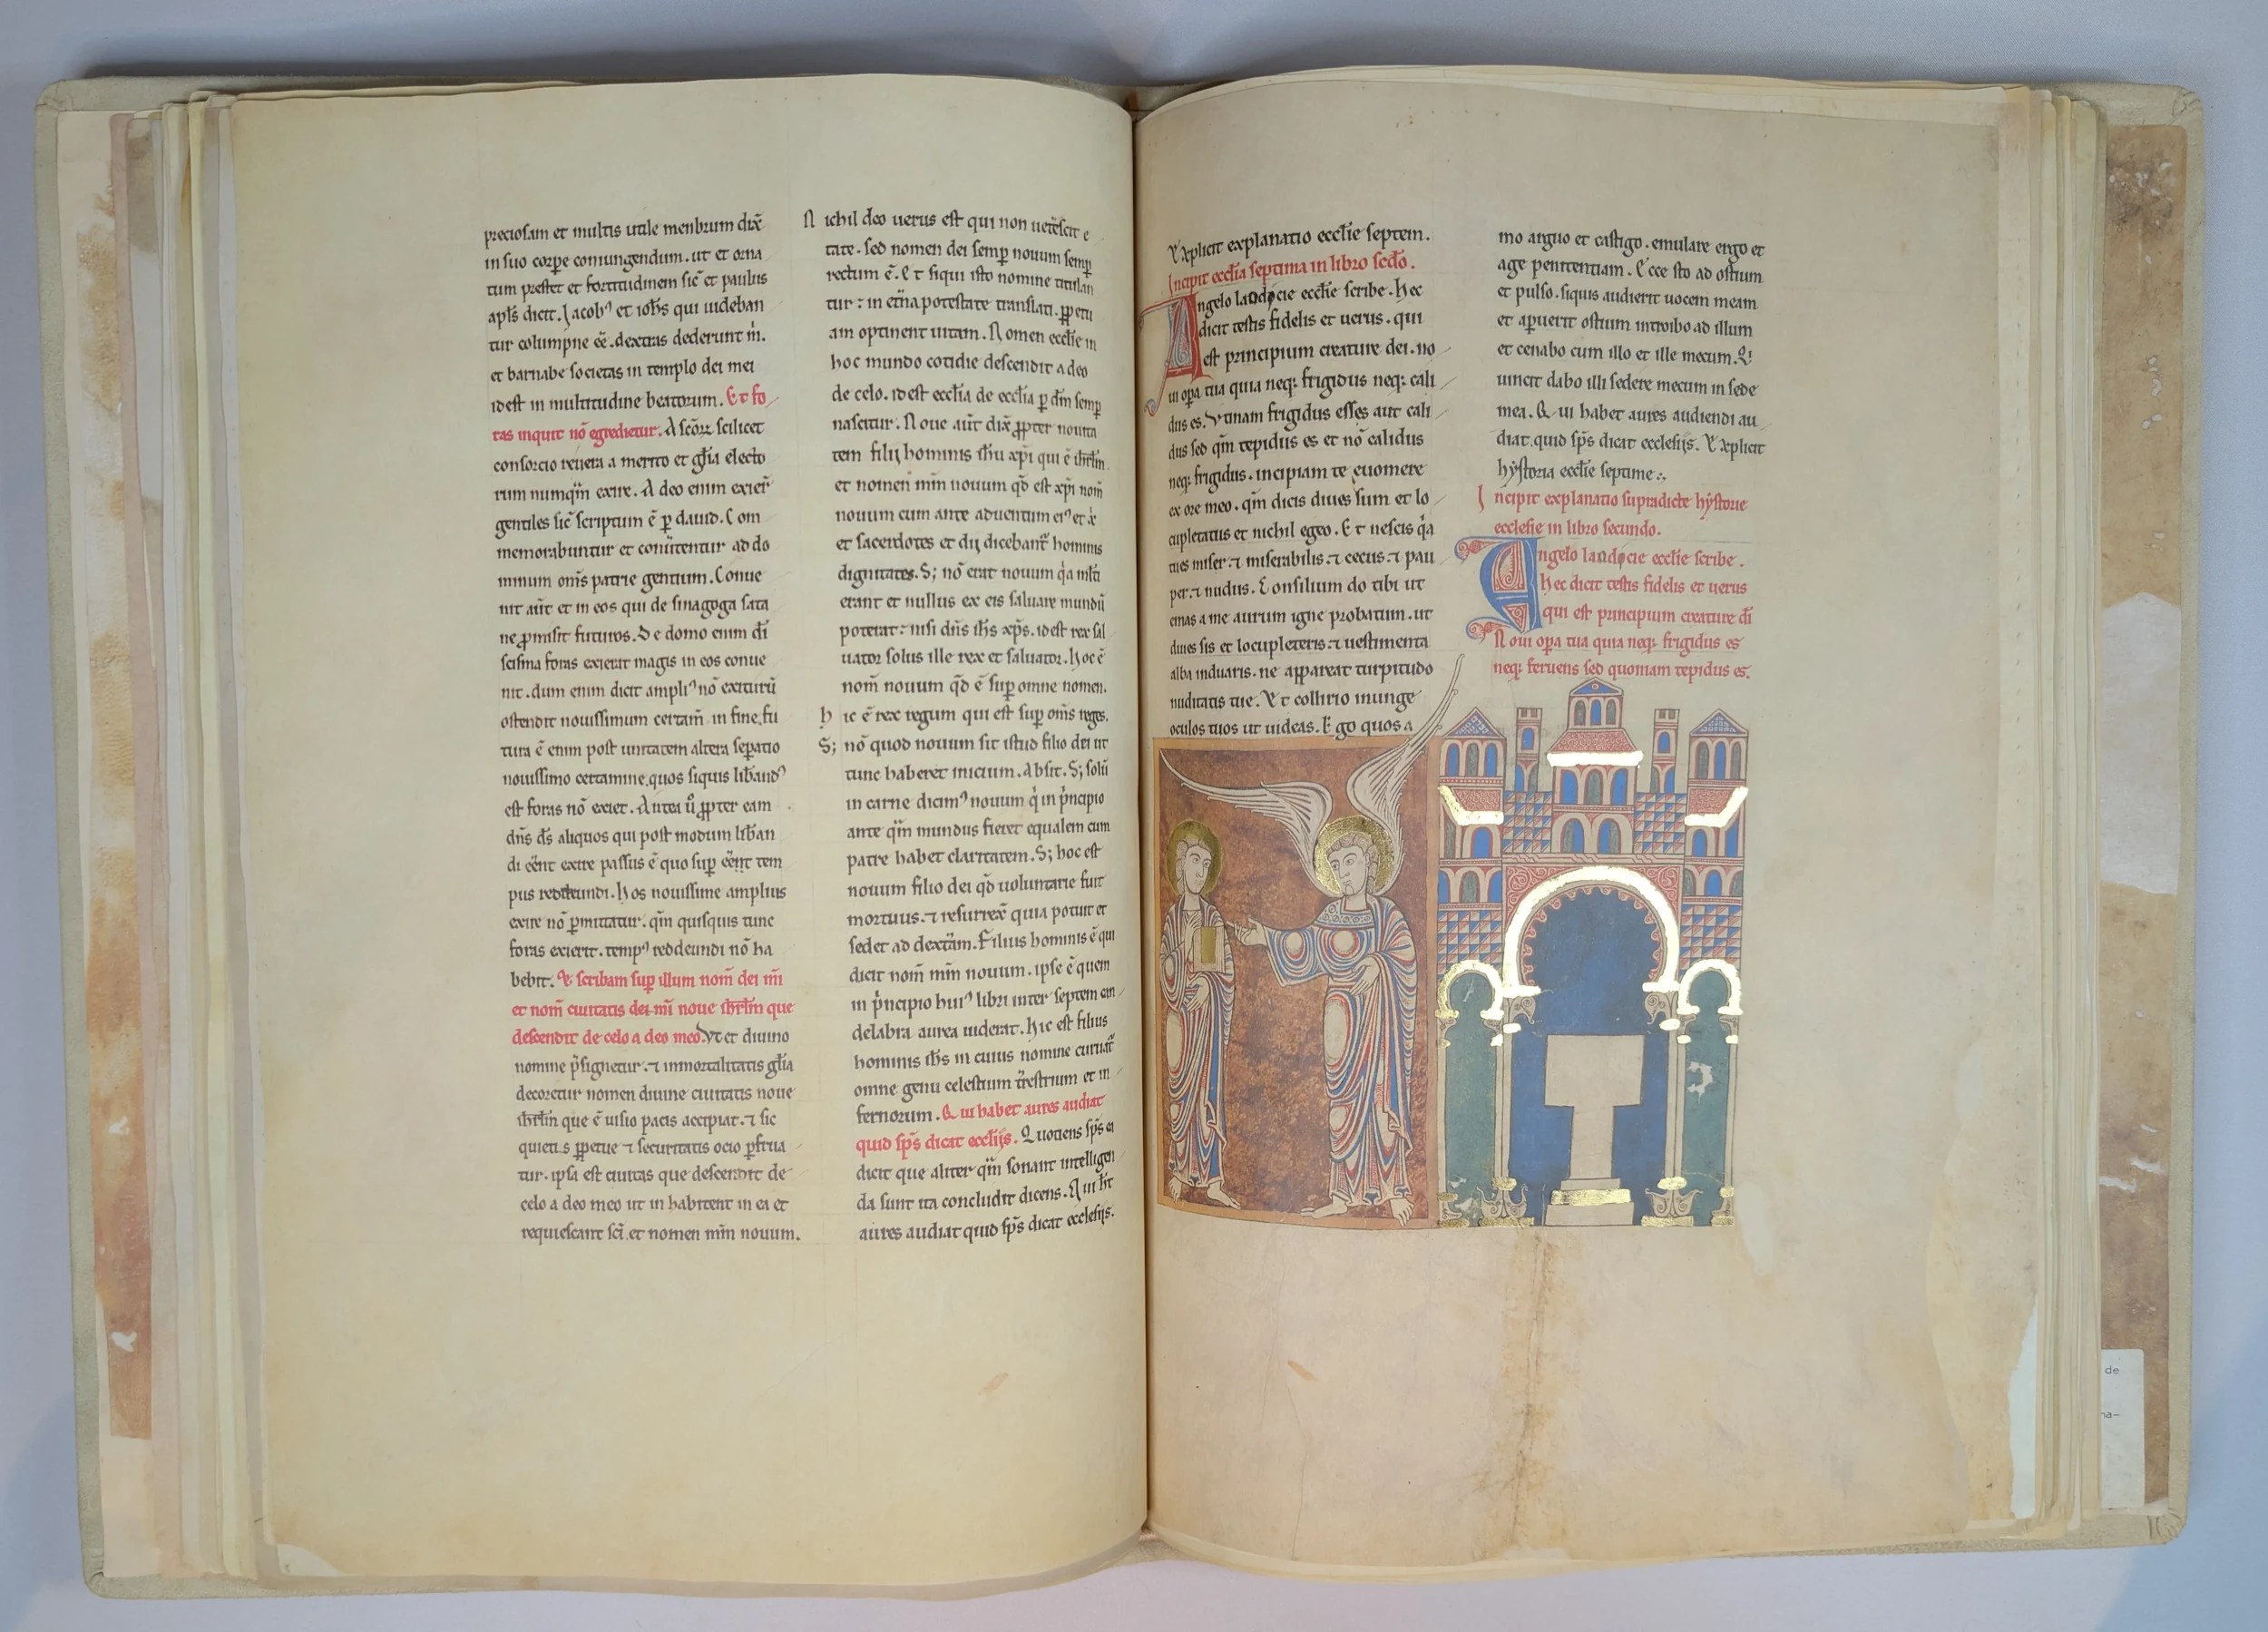 preciosam et multis utile menbrum dix̄
in suo corpe coniungendum. ut et orna
tum prestet et fortitudinem sic̄ et paulus
apl̄s dicit. Jacobꝰ et ioħs qui uideban
tur columpne ēē. dextras dederunt m̄.
et barnabe societas in templo dei mei
idest in multitudine beatorum. Et fo
ras inquit nō egredietur. A scōrꝝ scilicet
consorcio reuera a merito et gl̄ia electo
rum numqm̄ exire. A deo enim exier̄
gentiles sic̄ scriptum ē ꝑ dauid. Com
memorabuntur et conūtentur ad do
minum om̄s patrie gentium. Conue
nit aūt et in eos qui de sinagoga sata
ne ꝓmisit futuros. De domo enim di
scisma foras exierat magis in eos conue
nit. dum enim dicit ampliꝰ nō exiturū
ostendit nouissimum certam̄ in fine. fu
tura ē enim post unitatem altera sepatio
nouissimo certamine. quos siquis libandꝰ
est foras nō exiet. Antea ꝓpter eam
dn̄s ds̄ aliquos qui post modum liban
di exire passus ē quo suꝑ tem
pus redeundi. hos nouissime amplius
exire nō ꝑmittatur. qm̄ quisquis tunc
foras exierit. tempꝰ reddeundi nō ha
bebit. Et scribam suꝑ illum nom̄ dei mī
et nom̄ ciuitatis dei mī noue ihrl̄m que
descendit de celo a deo meo. Vt et diuino
nomine p̄signetur. ⁊ inmortalitatis gl̄ia
decoretur nomen diuine ciuitatis noue
ihrl̄m que ē uisio pacis accipiat. ⁊ sic
quietis ꝑpetue ⁊ securitatis ocio ꝑfrua
tur. ipsa est ciuitas que descendit de
celo a deo meo ut in habitent in ea et
requiescant sc̄i. et nomen mm̄ nouum.
Nichil deo uerus est qui non uetescit e
tate. sed nomen dei semꝑ nouum semꝑ
rectum ē. Et siqui isto nomine titulan
tur: in et̄na potestate translati. ꝑpetu
am optinent uitam. Nomen eccl̄ie in
hoc mundo cotidie descendit a deo
de celo. idest eccl̄ia de eccl̄ia ꝑ dm̄ semꝑ
nascitur. Noue aūt dix̄ ꝓpter nouita
tem filij hominis ih̄u xp̄i qui ē ihrl̄m.
et nomen mm̄ nouum qd̄ est xp̄i nom̄
nouum cum ante aduentum eiꝰ et
et sacerdotes et dij dicebant̄ hominis
dignitates. S; nō erat nouum q̄a ml̄ti
erant et nullus ex eis saluare mundū
poterat: nisi dn̄s ih̄s xp̄s. idest rex sal
uator solus ille rex et saluator. hoc ē
nom̄ nouum qd̄ ē suꝑ omne nomen.
hic ē rex regum qui est suꝑ om̄s reges.
S; nō quod nouum sit istud filio dei ut
tunc haberet inicium. Absit. S; solū
in carne dicimꝰ nouum q̇ in ṗncipio
ante qm̄ mundus fieret equalem cum
patre habet claritatem. S; hoc est
nouum filio dei qd̄ uoluntarie fuit
mortuus. ⁊ resurrex̄ quia potuit et
sedet ad dext̄am. Filius hominis ē qui
dicit nom̄ mm̄ nouum. ipse ē quem
in ṗncipio huiꝰ libri inter septem can
delabra aurea uiderat. hic est filius
hominis ih̄s in cuius nomine curuat̄
omne genu celestium t̄restrium et in
fernorum. Qui habet aures audiat
quid sp̄s dicat eccl̄ijs. Quotiens sp̄s ea
dicit que aliter qm̄ sonant intelligen
da sunt ita concludit dicens. Qui h̄t
aures audiat quid sp̄s dicat ecclesijs.
Explicit explanatio eccl̄ie septem.
Incipit eccl̄ia septima in libro sc̄do.
Angelo laodocie eccl̄ie scribe. Hec
dicit testis fidelis et uerus. qui
est principium creature dei. no
ui opa tua quia neqꝫ frigidus neqꝫ cali
dus es. Vtinam frigidus esses aut cali
dus sed qm̄ tepidus es et nō calidus
neqꝫ frigidus. incipiam te euomere
ex ore meo. qm̄ dicis diues sum et lo
cupletatus et nichil egeo. Et nescis q̄a
tues miser. ⁊ miserabilis. ⁊ cecus. ⁊ pau
per. ⁊ nudus. Consilium do tibi ut
emas a me aurum igne probatum. ut
diues sis et locupleteris. ⁊ uestimenta
alba induaris. ne appareat turpitudo
nuditatis tue. Et collirio inunge
oculos tuos ut uideas. Ego quos a
mo arguo et castigo. emulare ergo et
age penitentiam. Ecce sto ad ostium
et pulso. siquis audierit uocem meam
et apuerit ostium introibo ad illum
et cenabo cum illo et ille mecum. Q̇
uincit dabo illi sedere mecum in sede
mea. Qui habet aures audiendi au
diat. quid sp̄s dicat ecclesijs. Explicit
hẏstoria eccl̄ie septime:.
Incipit explanatio supradicte hẏstorie
ecclesie in libro secundo.
Angelo laodocie eccl̄ie scribe.
Hec dicit testis fidelis et uerus
qui est principium creature dī
Noui opa tua quia neqꝫ frigidus es
neqꝫ feruens sed quoniam tepidus es.
de
na-